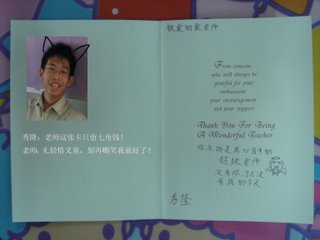 秀隆：老师这张卡只值七角钱！
老师：礼轻情义重，别再嘲笑我就好了！
敬爱的 老师
From someone
who will always be
grateful for your
enthusiasm
your encouragement
and your support.
Thank You For Being
A Wonderful Teacher
你永远是我心目中的
超级老师
没有你就没
有我的今天
秀隆